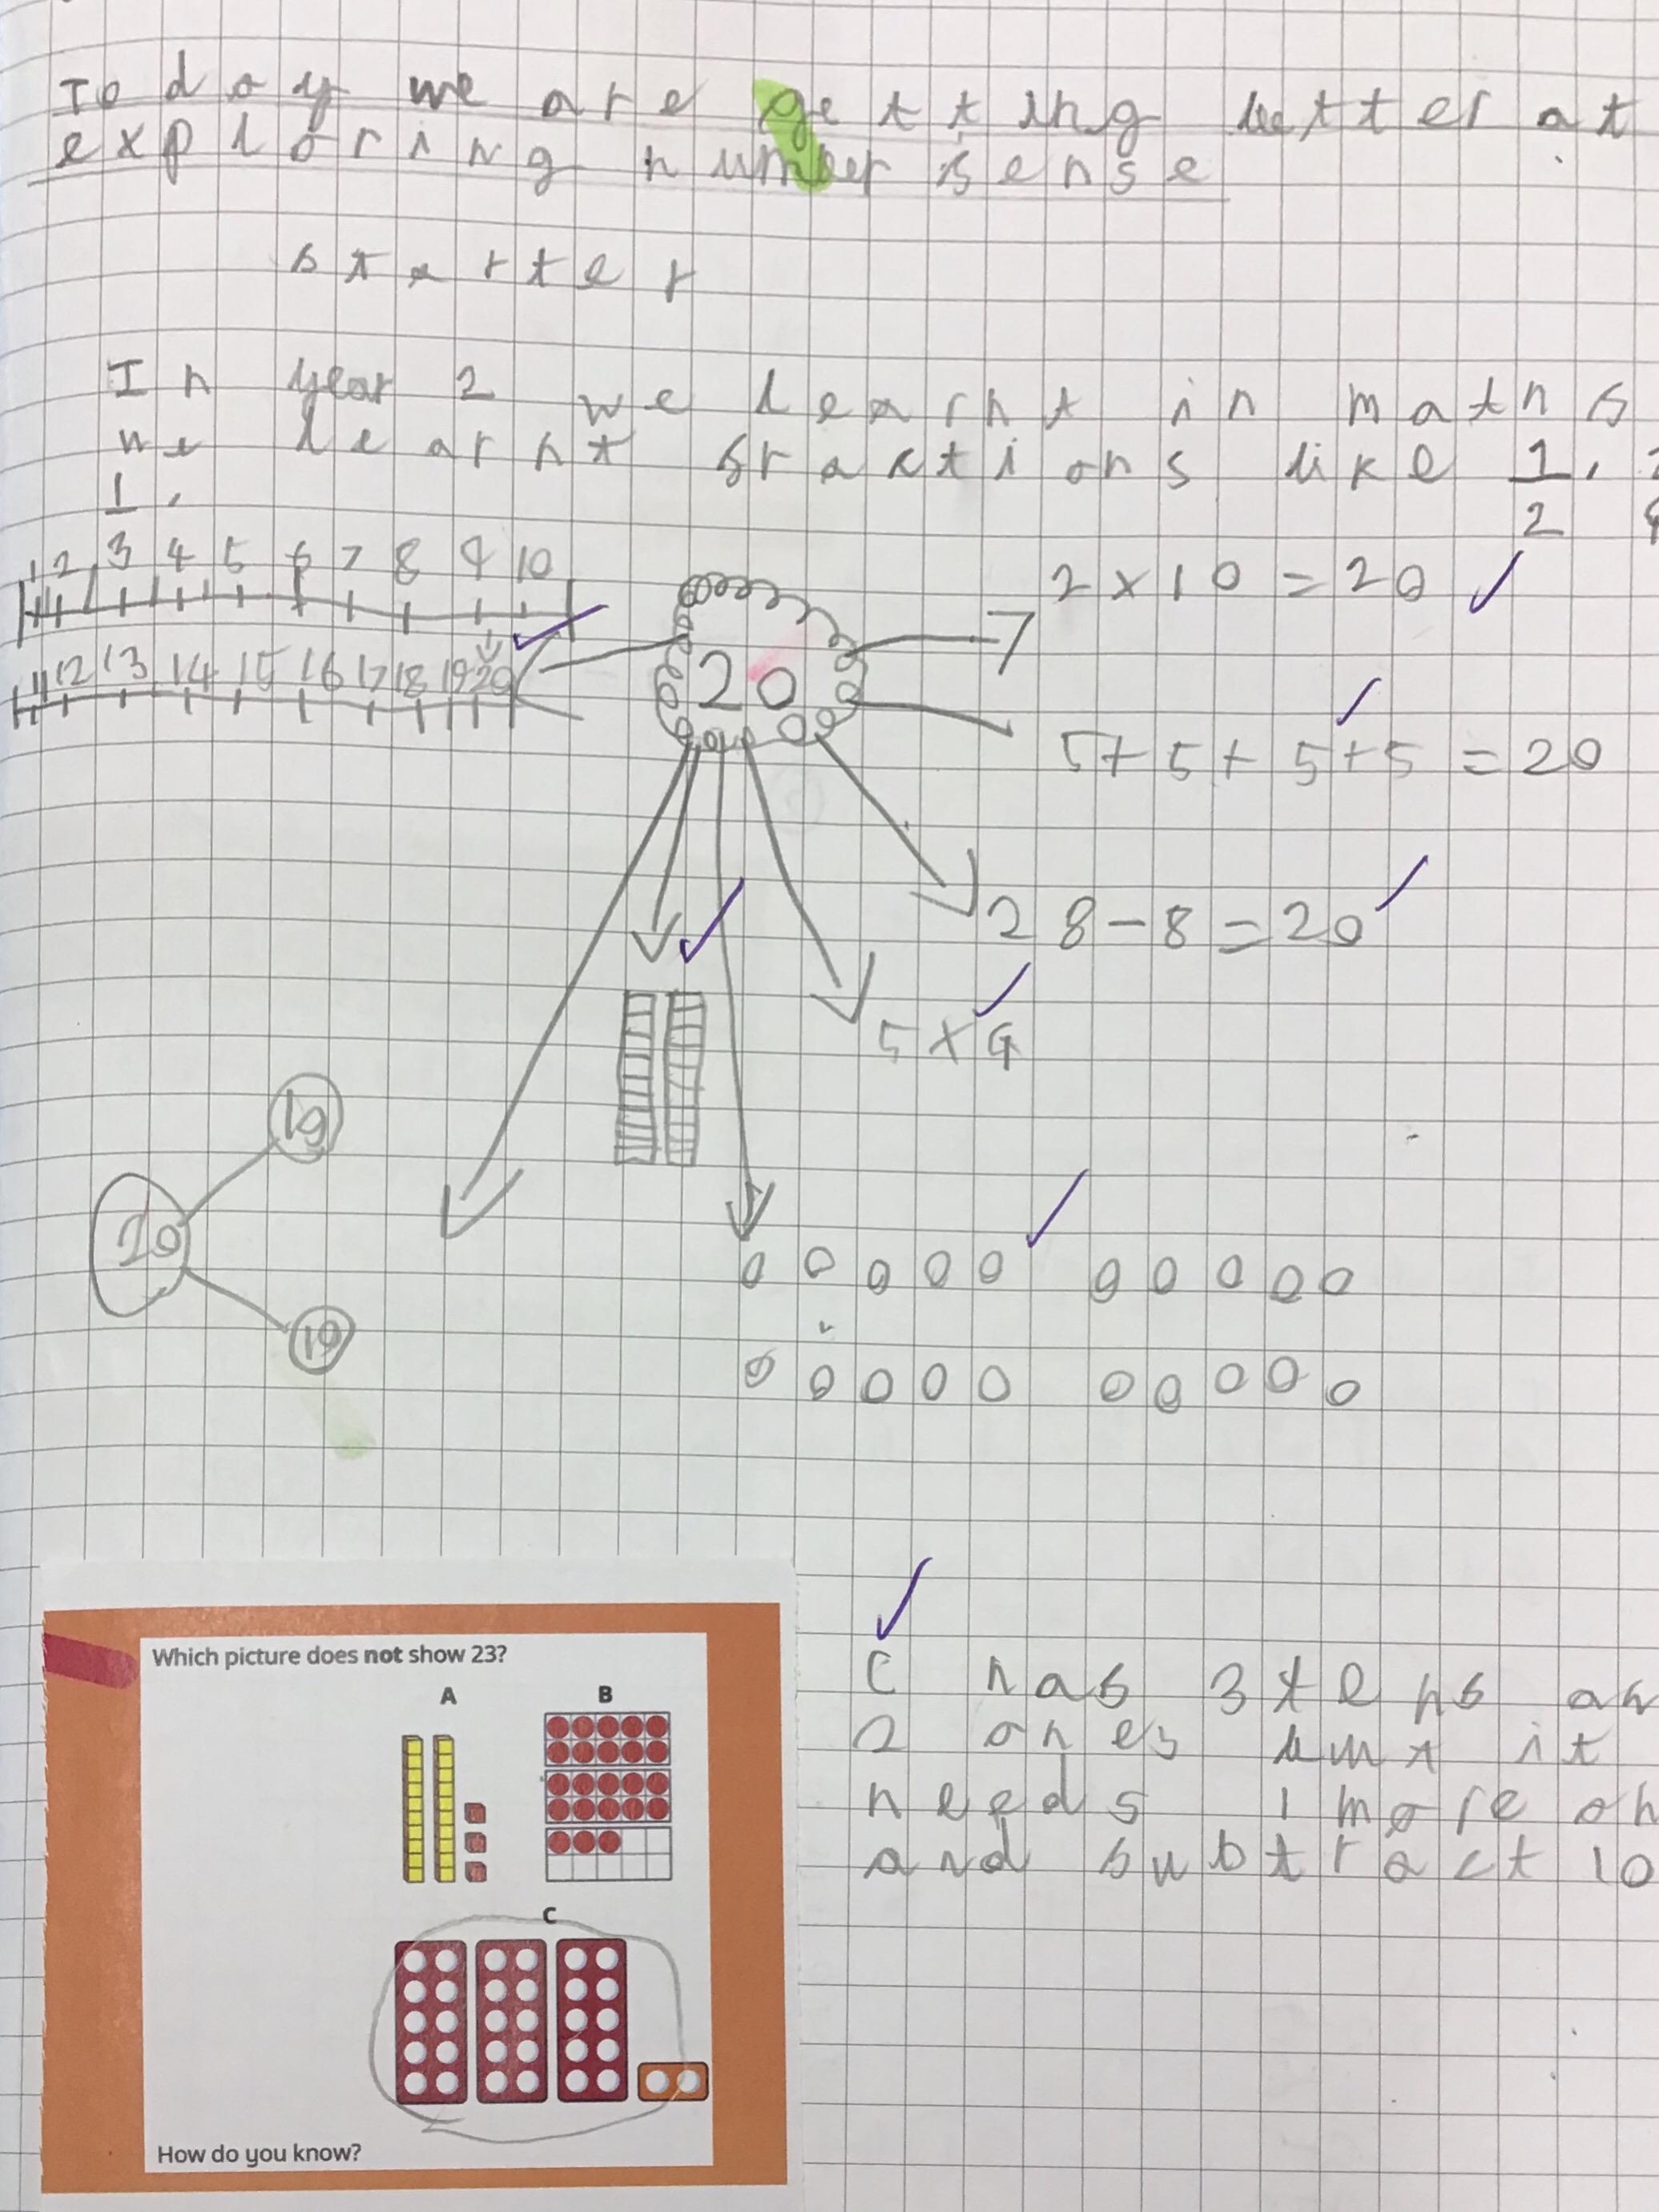 Today we are getting better at
exploring number sense
starter
In year 2 we learnt in maths
we learnt fractions like 1/2,
1,
1 2 3 4 5 6 7 8 9 10
11 12 13 14 15 16 17 18 19 20
20
2 x 10 = 20
5 + 5 + 5 + 5 = 20
28 - 8 = 20
5 x 4
10
20
10
Which picture does not show 23?
A
B
C
How do you know?
C has 3 tens an
2 ones but it
needs 1 more on
and subtract 10